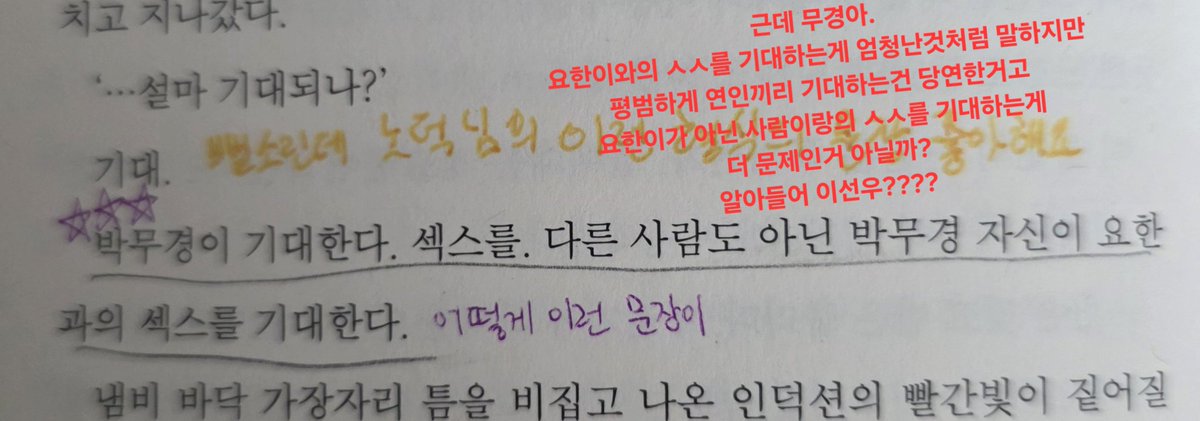 치고 지나갔다.
근데 무경아.
요한이와의 ㅅㅅ를 기대하는게 엄청난것처럼 말하지만
평범하게 연인끼리 기대하는건 당연한거고
요한이가 아닌 사람이랑의 ㅅㅅ를 기대하는게
더 문제인거 아닐까?
알아들어 이선우????
‘…설마 기대되나?’
뻘소린데 노덕님의 이런 형식의 좋아해요
기대.
☆☆☆
박무경이 기대한다. 섹스를. 다른 사람도 아닌 박무경 자신이 요한
과의 섹스를 기대한다. 어떻게 이런 문장이
냄비 바닥 가장자리 틈을 비집고 나온 인덕션의 빨간빛이 짙어질